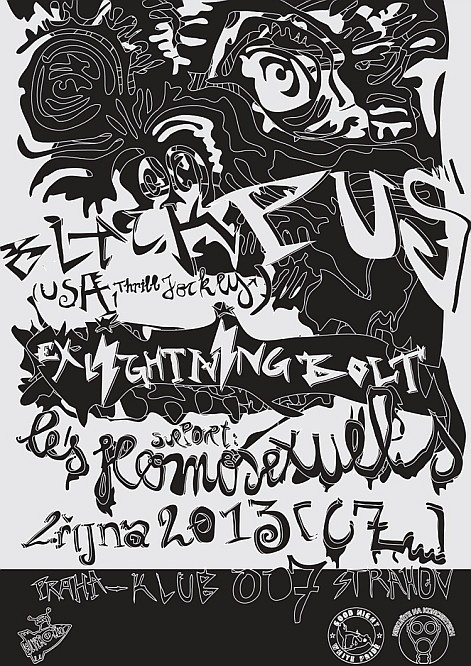 BLACK PUS
(USA, Thrill Jockey)
EX LIGHTNING BOLT
support:
les Homosexuels
2října 2013 [CZ]
PRAHA - KLUB 007 STRAHOV
GOOD NIGHT
WHITE PRIDE